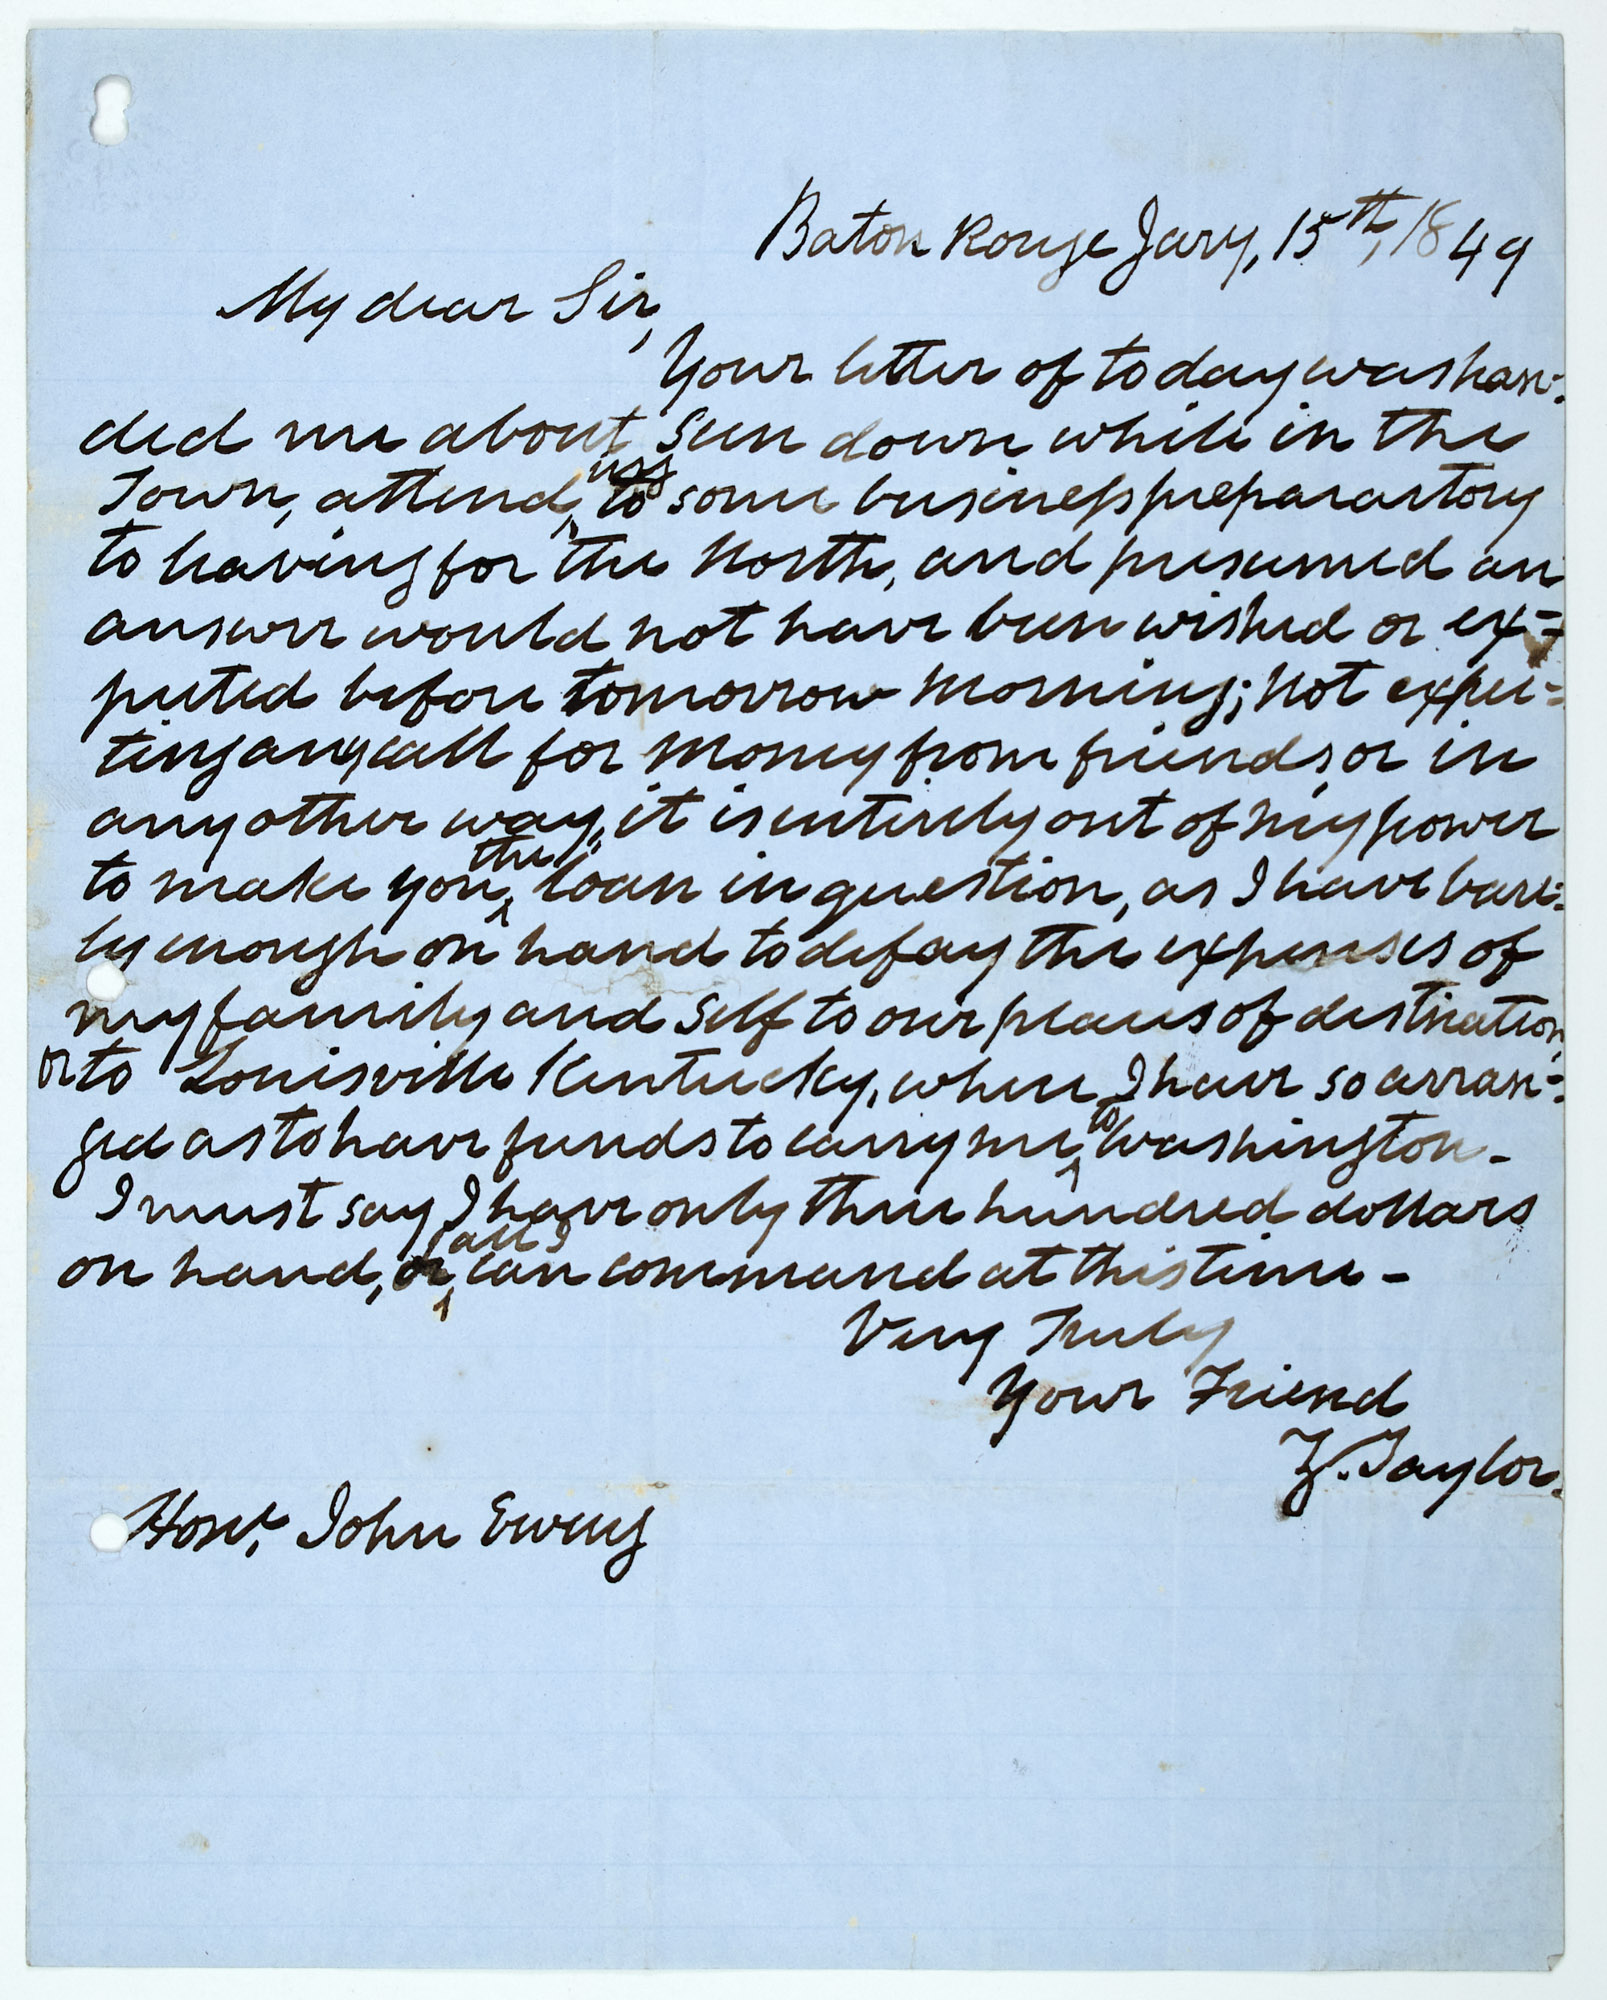 Baton Rouge Jary, 15th, 1849
My dear Sir,
Your letter of to day was han-
ded me about Sun down while in the
Town, attending to some business preparartory
to leaving for the North, and presumed an
answer would not have been wished or ex=
pected before tomorrow morning; Not expec=
ting any call for money from friends or in
any other way, it is entirely out of my power
to make you the loan in question, as I have bare=
ly enough on hand to defay the expenses of
my family and self to our places of destination,
or to Louisville Kentucky, where I have so arran=
ged as to have funds to carry me to Washington -
I must say I have only three hundred dollars
on hand, or can command at this time -
Very Truly
Your Friend
Z. Taylor.
Honl. John Ewing